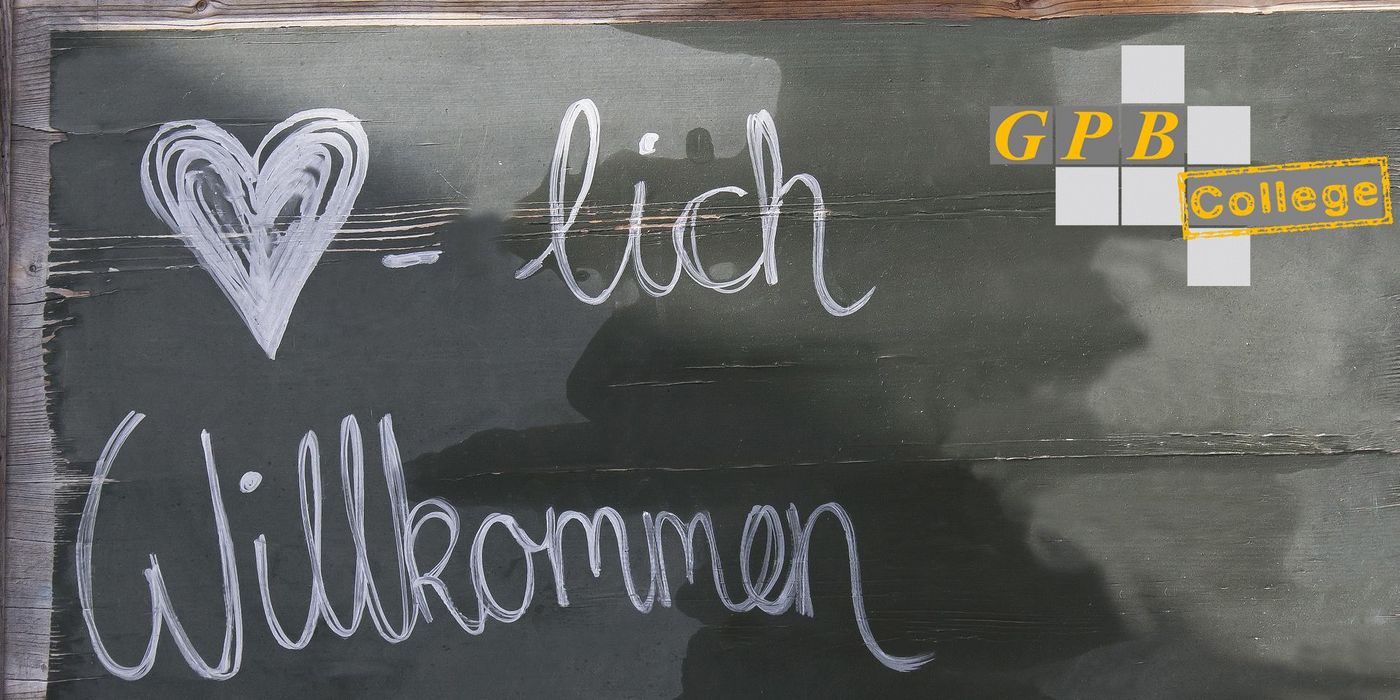 - lich
Willkommen
GPB
College